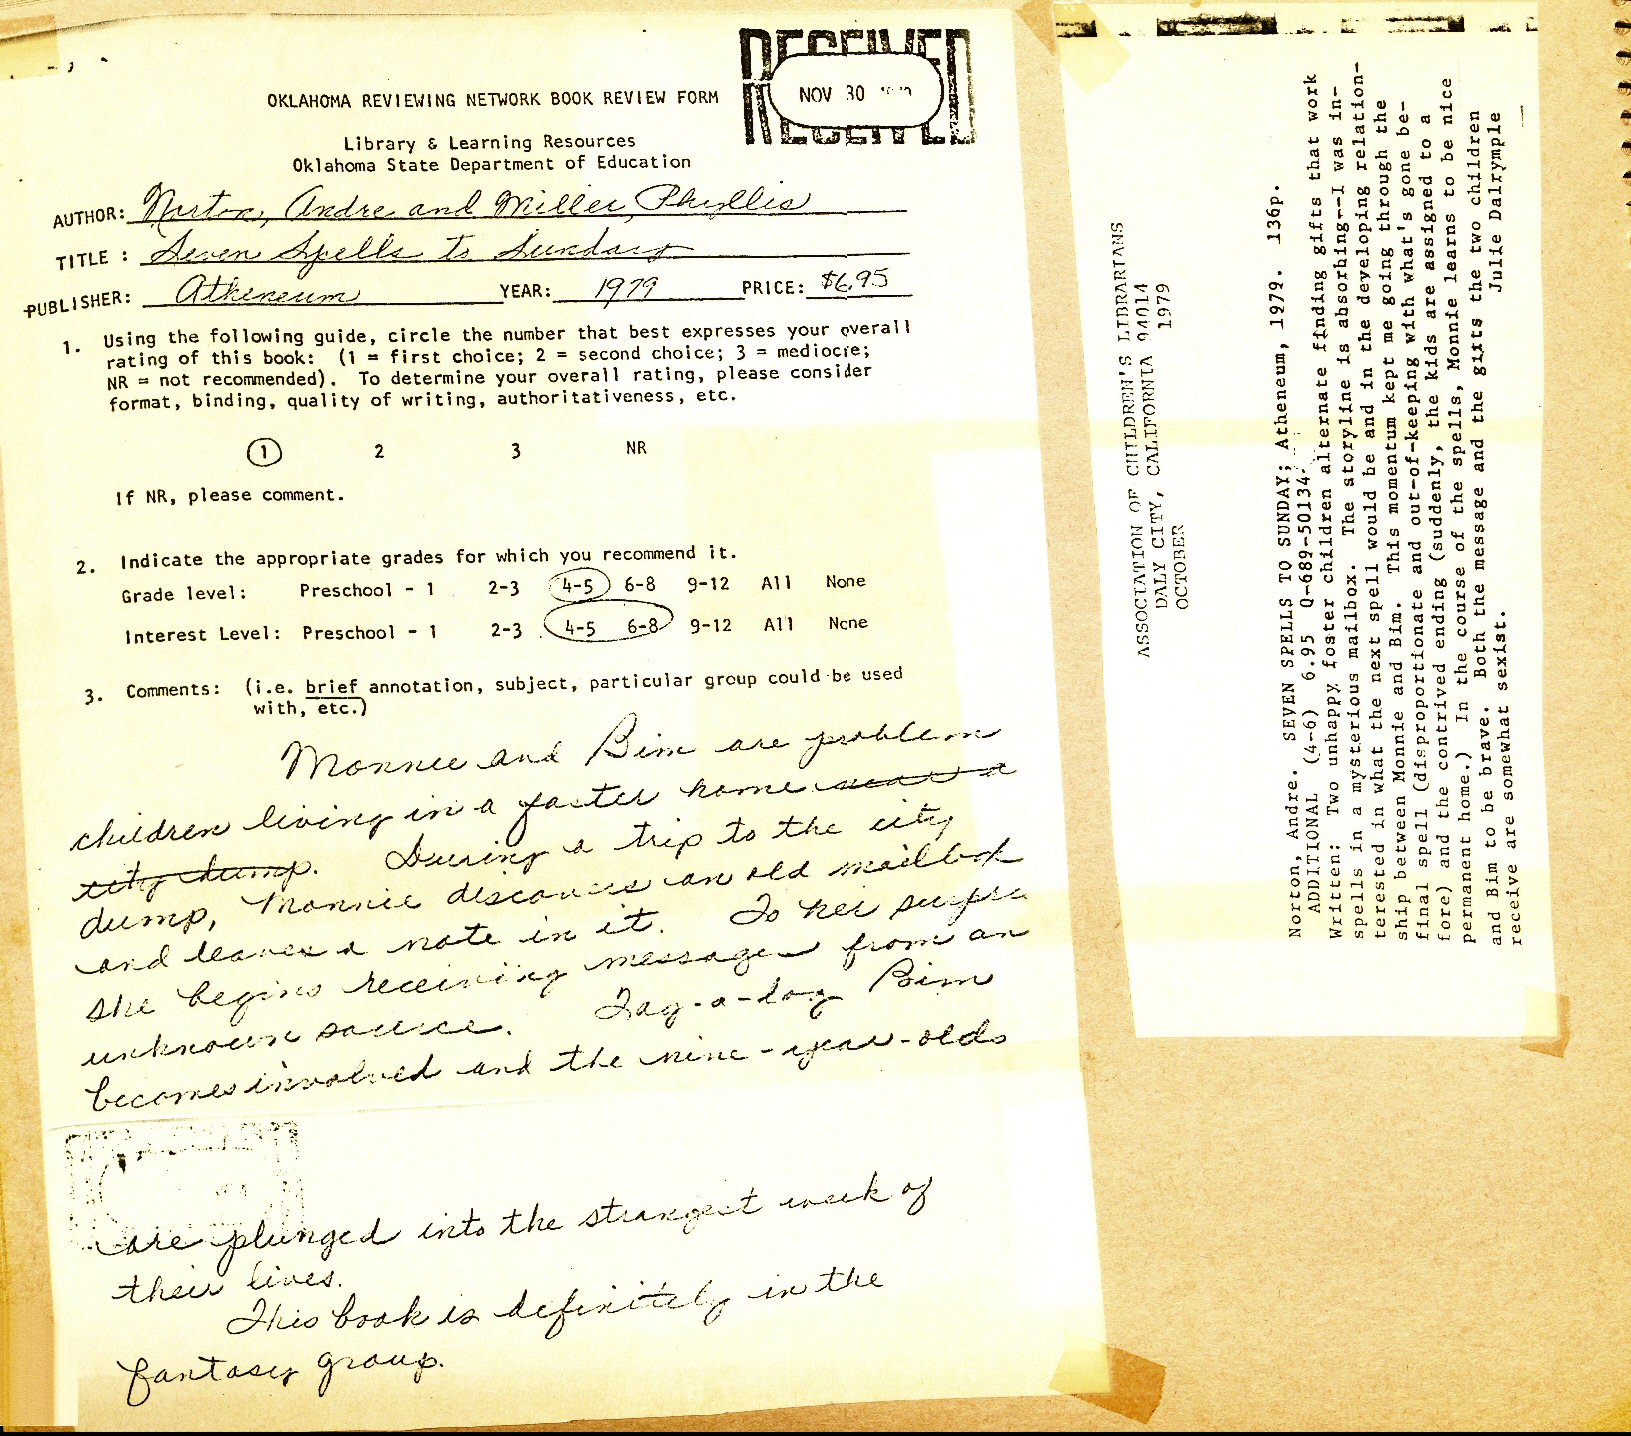 RECEIVED
NOV 30
OKLAHOMA REVIEWING NETWORK BOOK REVIEW FORM
Library & Learning Resources
Oklahoma State Department of Education
AUTHOR: Norton, Andre and Miller, Phyllis
TITLE: Seven Spells to Sunday
PUBLISHER: Atheneum YEAR: 1979 PRICE: $6.95
1. Using the following guide, circle the number that best expresses your overall
rating of this book: (1 = first choice; 2 = second choice; 3 = mediocre;
NR = not recommended). To determine your overall rating, please consider
format, binding, quality of writing, authoritativeness, etc.
1 2 3 NR
If NR, please comment.
2. Indicate the appropriate grades for which you recommend it.
Grade level: Preschool - 1 2-3 4-5 6-8 9-12 All None
Interest Level: Preschool - 1 2-3 4-5 6-8 9-12 All None
3. Comments: (i.e. brief annotation, subject, particular group could be used
with, etc.)
Monnie and Bim are problem
children living in a foster home near a
city dump. During a trip to the city
dump, Monnie discovers an old mailbox
and leaves a note in it. To her surpri
she begins receiving messages from an
unknown source. Tag-a-long Bim
becomes involved and the nine-year-olds
are plunged into the strangest week of
their lives.
This book is definitely in the
fantasy group.
ASSOCIATION OF CHILDREN'S LIBRARIANS
DALY CITY, CALIFORNIA 94014
OCTOBER 1979
Norton, Andre. SEVEN SPELLS TO SUNDAY; Atheneum, 1979. 136p.
ADDITIONAL (4-6) 6.95 0-689-50134-
Written: Two unhappy foster children alternate finding gifts that work
spells in a mysterious mailbox. The storyline is absorbing--I was in-
terested in what the next spell would be and in the developing relation-
ship between Monnie and Bim. This momentum kept me going through the
final spell (disproportionate and out-of-keeping with what's gone be-
fore) and the contrived ending (suddenly, the kids are assigned to a
permanent home.) In the course of the spells, Monnie learns to be nice
and Bim to be brave. Both the message and the gifts the two children
receive are somewhat sexist. Julie Dalrymple